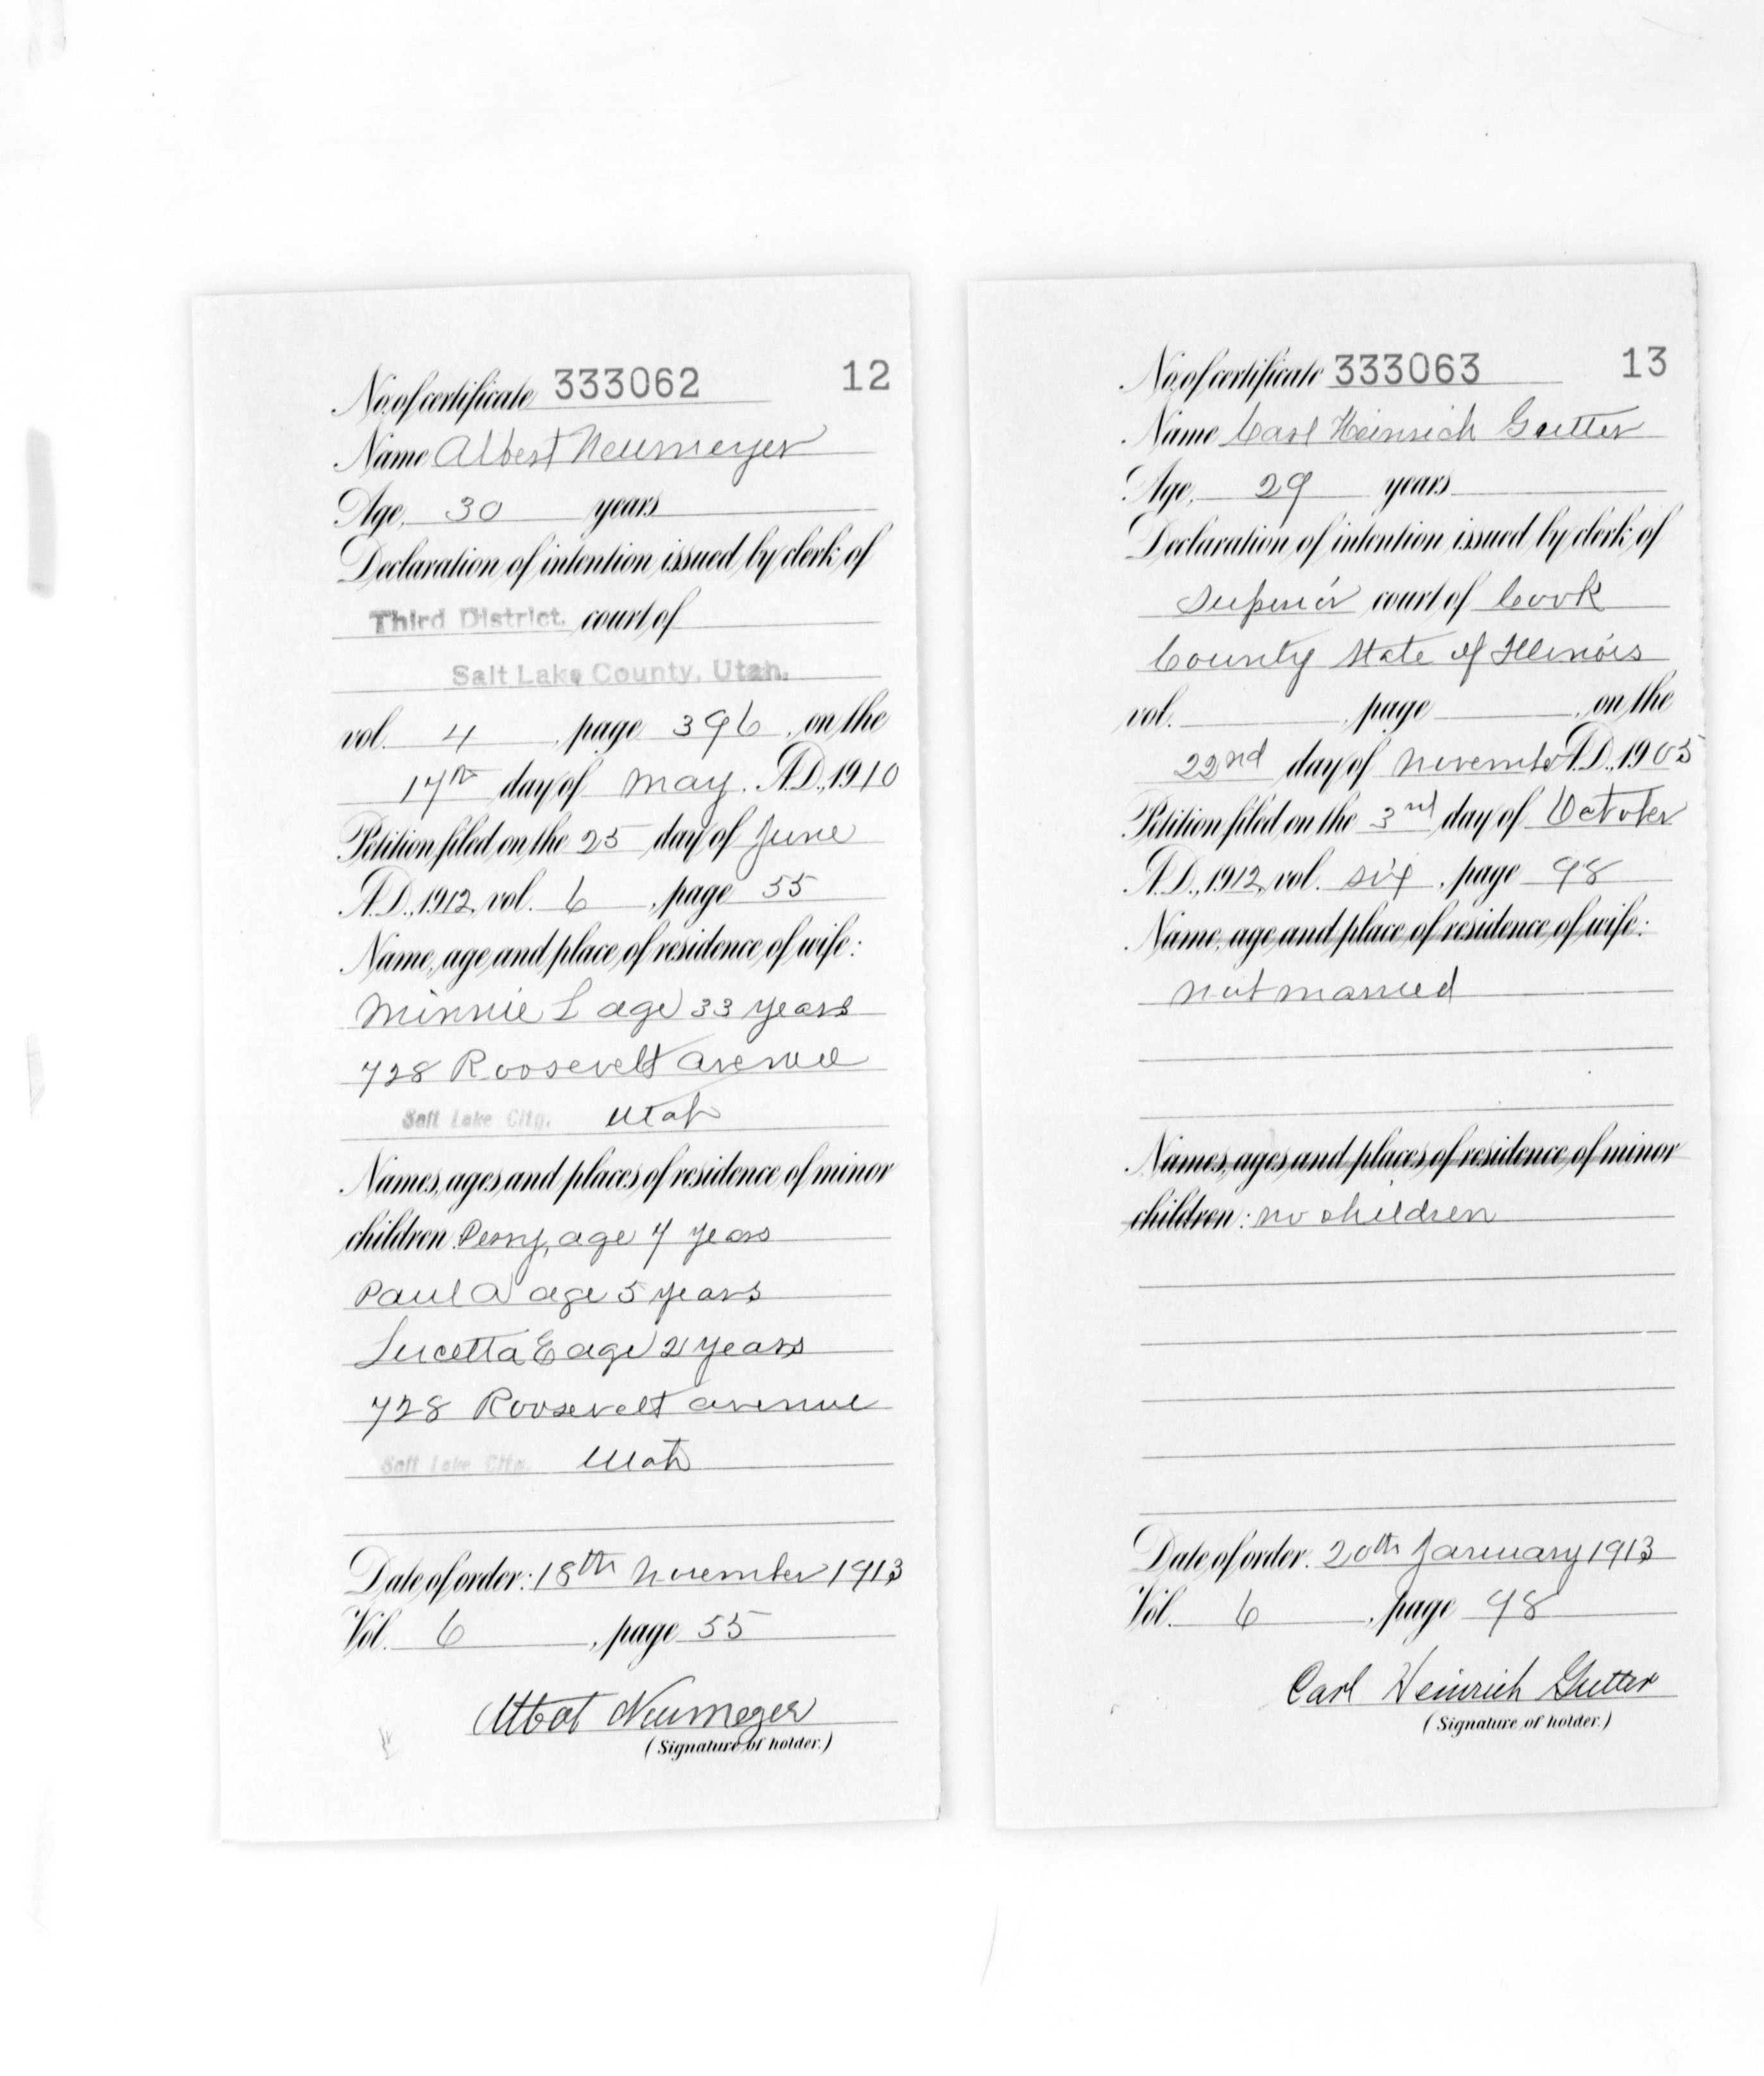 No. of certificate 333062 12
Name Albert Neumeyer
Age, 30 years
Declaration of intention issued by clerk of
Third District. court of
Salt Lake County, Utah.
vol. 4, page 396, on the
17th day of May. A.D., 1910
Petition filed on the 25 day of June
A.D., 1912, vol. 6, page 55
Name, age and place of residence of wife:
Minnie L age 33 years
728 Roosevelt avenue
Salt Lake City. Utah
Names, ages and places of residence of minor
children Perry, age 7 years
Paul A age 5 years
Lucetta E age 2 years
728 Roosevelt avenue
Salt Lake City. Utah
Date of order: 18th November 1913
Vol. 6, page 55
Albert Neumeyer
(Signature of holder.)
No. of certificate 333063 13
Name Carl Heinrich Gutter
Age, 29 years
Declaration of intention issued by clerk of
Superior court of Cook
County State of Illinois
vol. , page , on the
22nd day of November A.D., 1905
Petition filed on the 3rd day of October
A.D., 1912, vol. six, page 98
Name, age and place of residence of wife:
not married
Names, ages and places of residence of minor
children: no children
Date of order. 20th January 1913
Vol. 6, page 98
Carl Heinrich Gutter
(Signature of holder.)